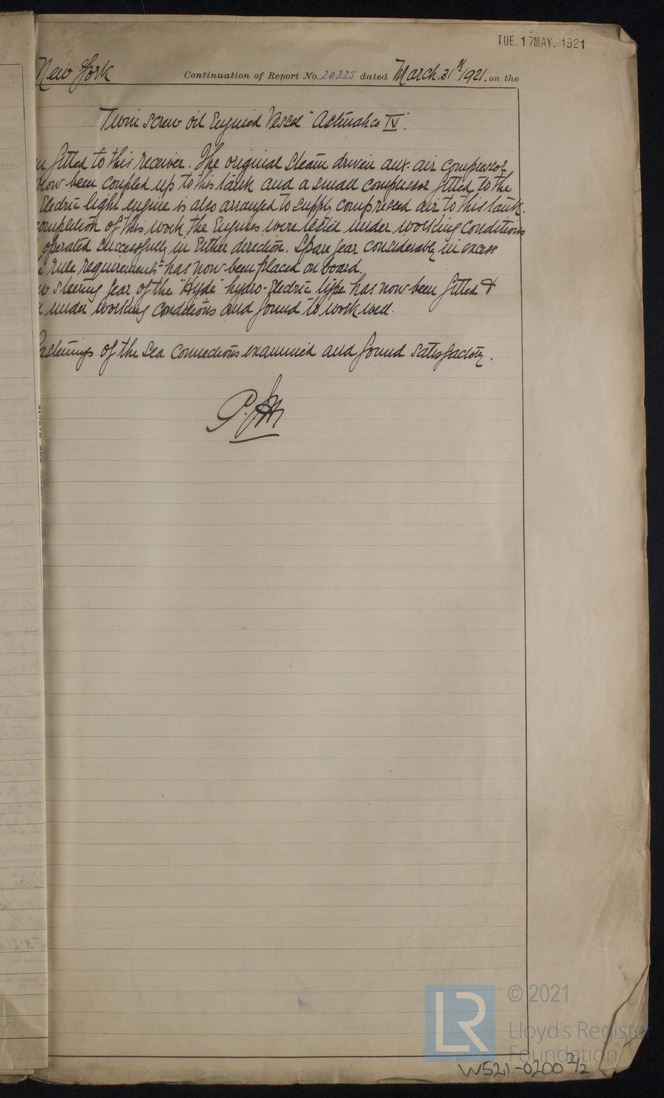 TUE. 17 MAY. 1921
New York Continuation of Report No. 20225 dated March. 31st 1921. on the
Twin Screw oil Engined Vessel
fitted to this receiver. The original steam driven aux. air compressor
now been coupled up to this tank and a small compressor fitted to the
Electric light engine is also arranged to supply compressed air to this tank.
completion of this work the Engines were tested under working conditions
operated successfully in Either direction. Spare gear considerably in excess
rule requirements has now been placed on board.
steering gear of the "Hyde" hydro-Electric type has now been fitted &
under working conditions and found to work well.
fastenings of the sea connections examined and found satisfactory.
© 2021
LR
Lloyd's Register
Foundation
W521-0200 2/2